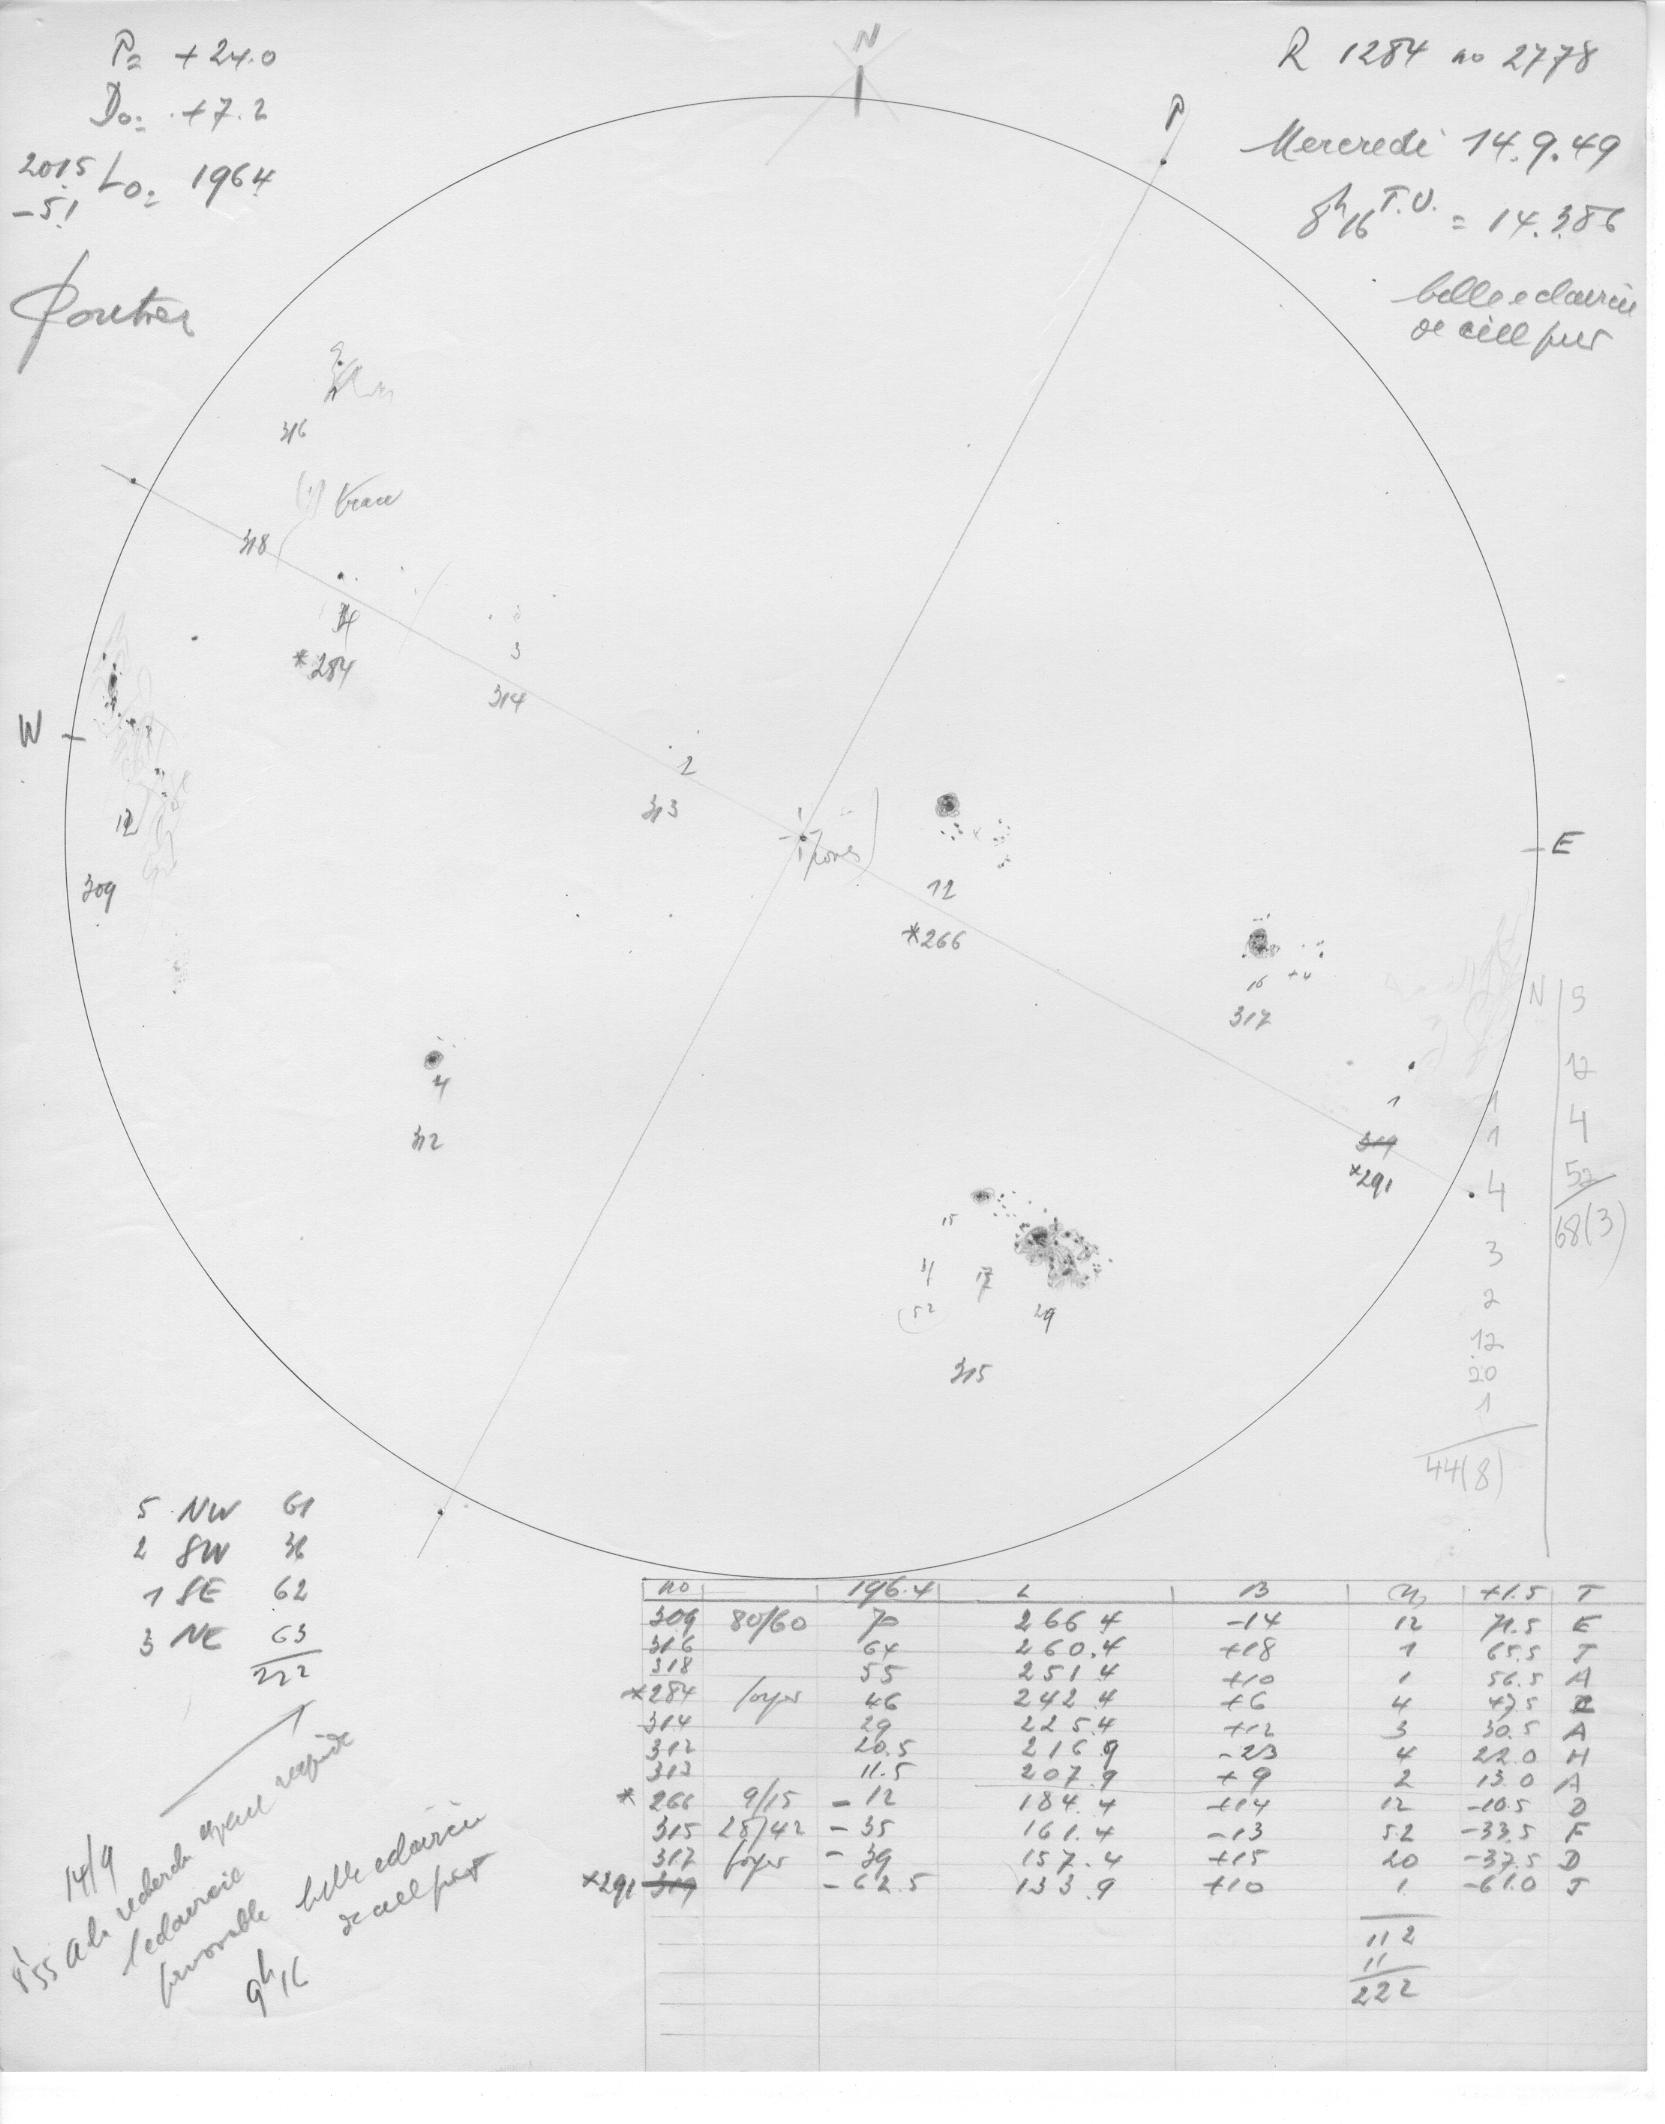 P= +24.0
D0= +7.2
2015 L0= 1964
-51
N
P
R 1284 no 2778
Mercredi 14.9.49
8h16 T.U. = 14.386
belle eclaircie
de ciel pur
316
trace
318
4
*284
3
314
W
2
313
12
309
pores
12
*266
E
16 +4
317
N S
12
1
319
*291
1
1 4
4 52
68(3)
3
2
12
20
1
44(8)
4
312
15
11 17
(52) 29
315
5 NW 61
2 SW 36
1 SE 62
3 NE 63
222
14/9
8h55 a la recherche
eclaircie
favorable belle eclaircie
de ciel pur
9h16
no 196.4 L B +1.5 T
309 80/60 70 266.4 -14 12 71.5 E
316 64 260.4 +18 1 65.5 J
318 55 251.4 +10 1 56.5 A
*284 foyer 46 242.4 +6 4 47.5
314 29 225.4 +12 3 30.5 A
312 20.5 216.9 -23 4 22.0 H
313 11.5 207.9 +9 2 13.0 A
* 266 9/15 -12 184.4 +14 12 -10.5 D
315 28/42 -35 161.4 -13 52 -33.5 F
317 foyer -39 157.4 +15 20 -37.5 D
*291 319 -62.5 133.9 +10 1 -61.0 J
112
11
222